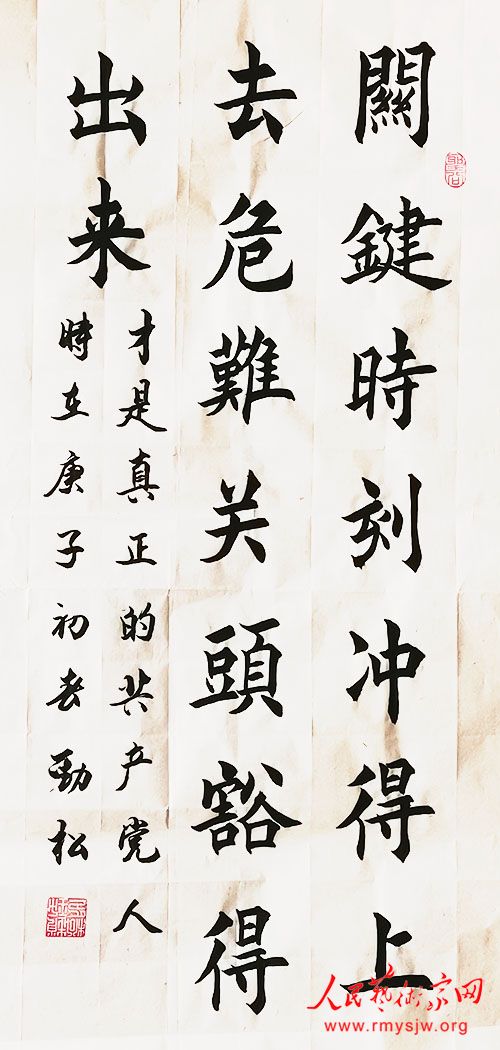 關鍵時刻冲得上
去危難关頭豁得
出来
才是真正的共产党人
時在庚子初春勁松
人民藝術家网
www.rmysjw.org